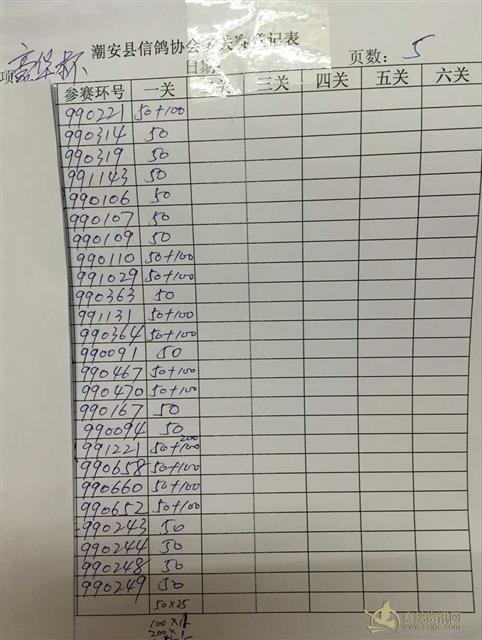 潮安县信鸽协会多关赛登记表
项 嘉华杯 日期 页数：5
参赛环号 一关 二关 三关 四关 五关 六关
990221 50+100
990314 50
990319 50
991143 50
990106 50
990107 50
990109 50
990110 50+100
991029 50+100
990363 50
991131 50+100
990364 50+100
990091 50
990467 50+100
990470 50+100
990167 50
990094 50
991221 50+100 200
990658 50+100
990660 50+100
990652 50+100
990243 50
990244 50
990248 50
990249 50
50×25
100×11
200×1